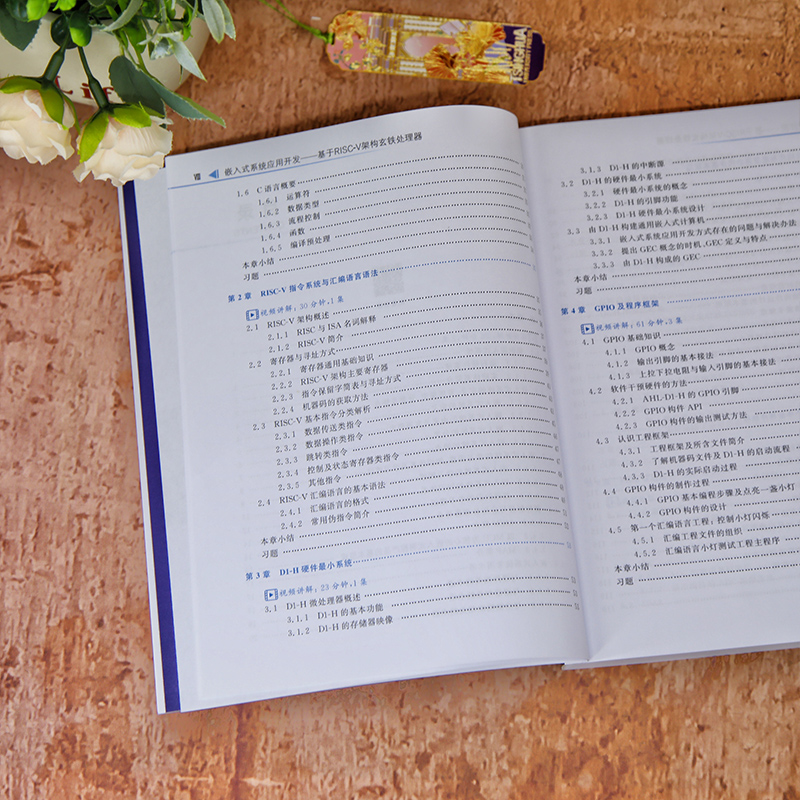 TSINGHUA
Ⅷ 嵌入式系统应用开发——基于RISC-V架构玄铁处理器
1.6 C语言概要
1.6.1 运算符
1.6.2 数据类型
1.6.3 流程控制
1.6.4 函数
1.6.5 编译预处理
本章小结
习题
第2章 RISC-V指令系统与汇编语言语法
视频讲解：30分钟，1集
2.1 RISC-V架构概述
2.1.1 RISC与ISA名词解释
2.1.2 RISC-V简介
2.2 寄存器与寻址方式
2.2.1 寄存器通用基础知识
2.2.2 RISC-V架构主要寄存器
2.2.3 指令保留字简表与寻址方式
2.2.4 机器码的获取方法
2.3 RISC-V基本指令分类解析
2.3.1 数据传送类指令
2.3.2 数据操作类指令
2.3.3 跳转类指令
2.3.4 控制及状态寄存器类指令
2.3.5 其他指令
2.4 RISC-V汇编语言的基本语法
2.4.1 汇编语言的格式
2.4.2 常用伪指令简介
本章小结
习题
第3章 D1-H硬件最小系统
视频讲解：23分钟，1集
3.1 D1-H微处理器概述
3.1.1 D1-H的基本功能
3.1.2 D1-H的存储器映像
3.1.3 D1-H的中断源
3.2 D1-H的硬件最小系统
3.2.1 硬件最小系统的概念
3.2.2 D1-H的引脚功能
3.2.3 D1-H硬件最小系统设计
3.3 由D1-H构建通用嵌入式计算机
3.3.1 嵌入式系统应用开发方式存在的问题与解决办法
3.3.2 提出GEC概念的时机、GEC定义与特点
3.3.3 由D1-H构成的GEC
本章小结
习题
第4章 GPIO及程序框架
视频讲解：61分钟，3集
4.1 GPIO基础知识
4.1.1 GPIO概念
4.1.2 输出引脚的基本接法
4.1.3 上拉下拉电阻与输入引脚的基本接法
4.2 软件干预硬件的方法
4.2.1 AHL-D1-H的GPIO引脚
4.2.2 GPIO构件API
4.2.3 GPIO构件的输出测试方法
4.3 认识工程框架
4.3.1 工程框架及所含文件简介
4.3.2 了解机器码文件及D1-H的启动流程
4.3.3 D1-H的实际启动过程
4.4 GPIO构件的制作过程
4.4.1 GPIO基本编程步骤及点亮一盏小灯
4.4.2 GPIO构件的设计
4.5 第一个汇编语言工程：控制小灯闪烁
4.5.1 汇编工程文件的组织
4.5.2 汇编语言小灯测试工程主程序
本章小结
习题